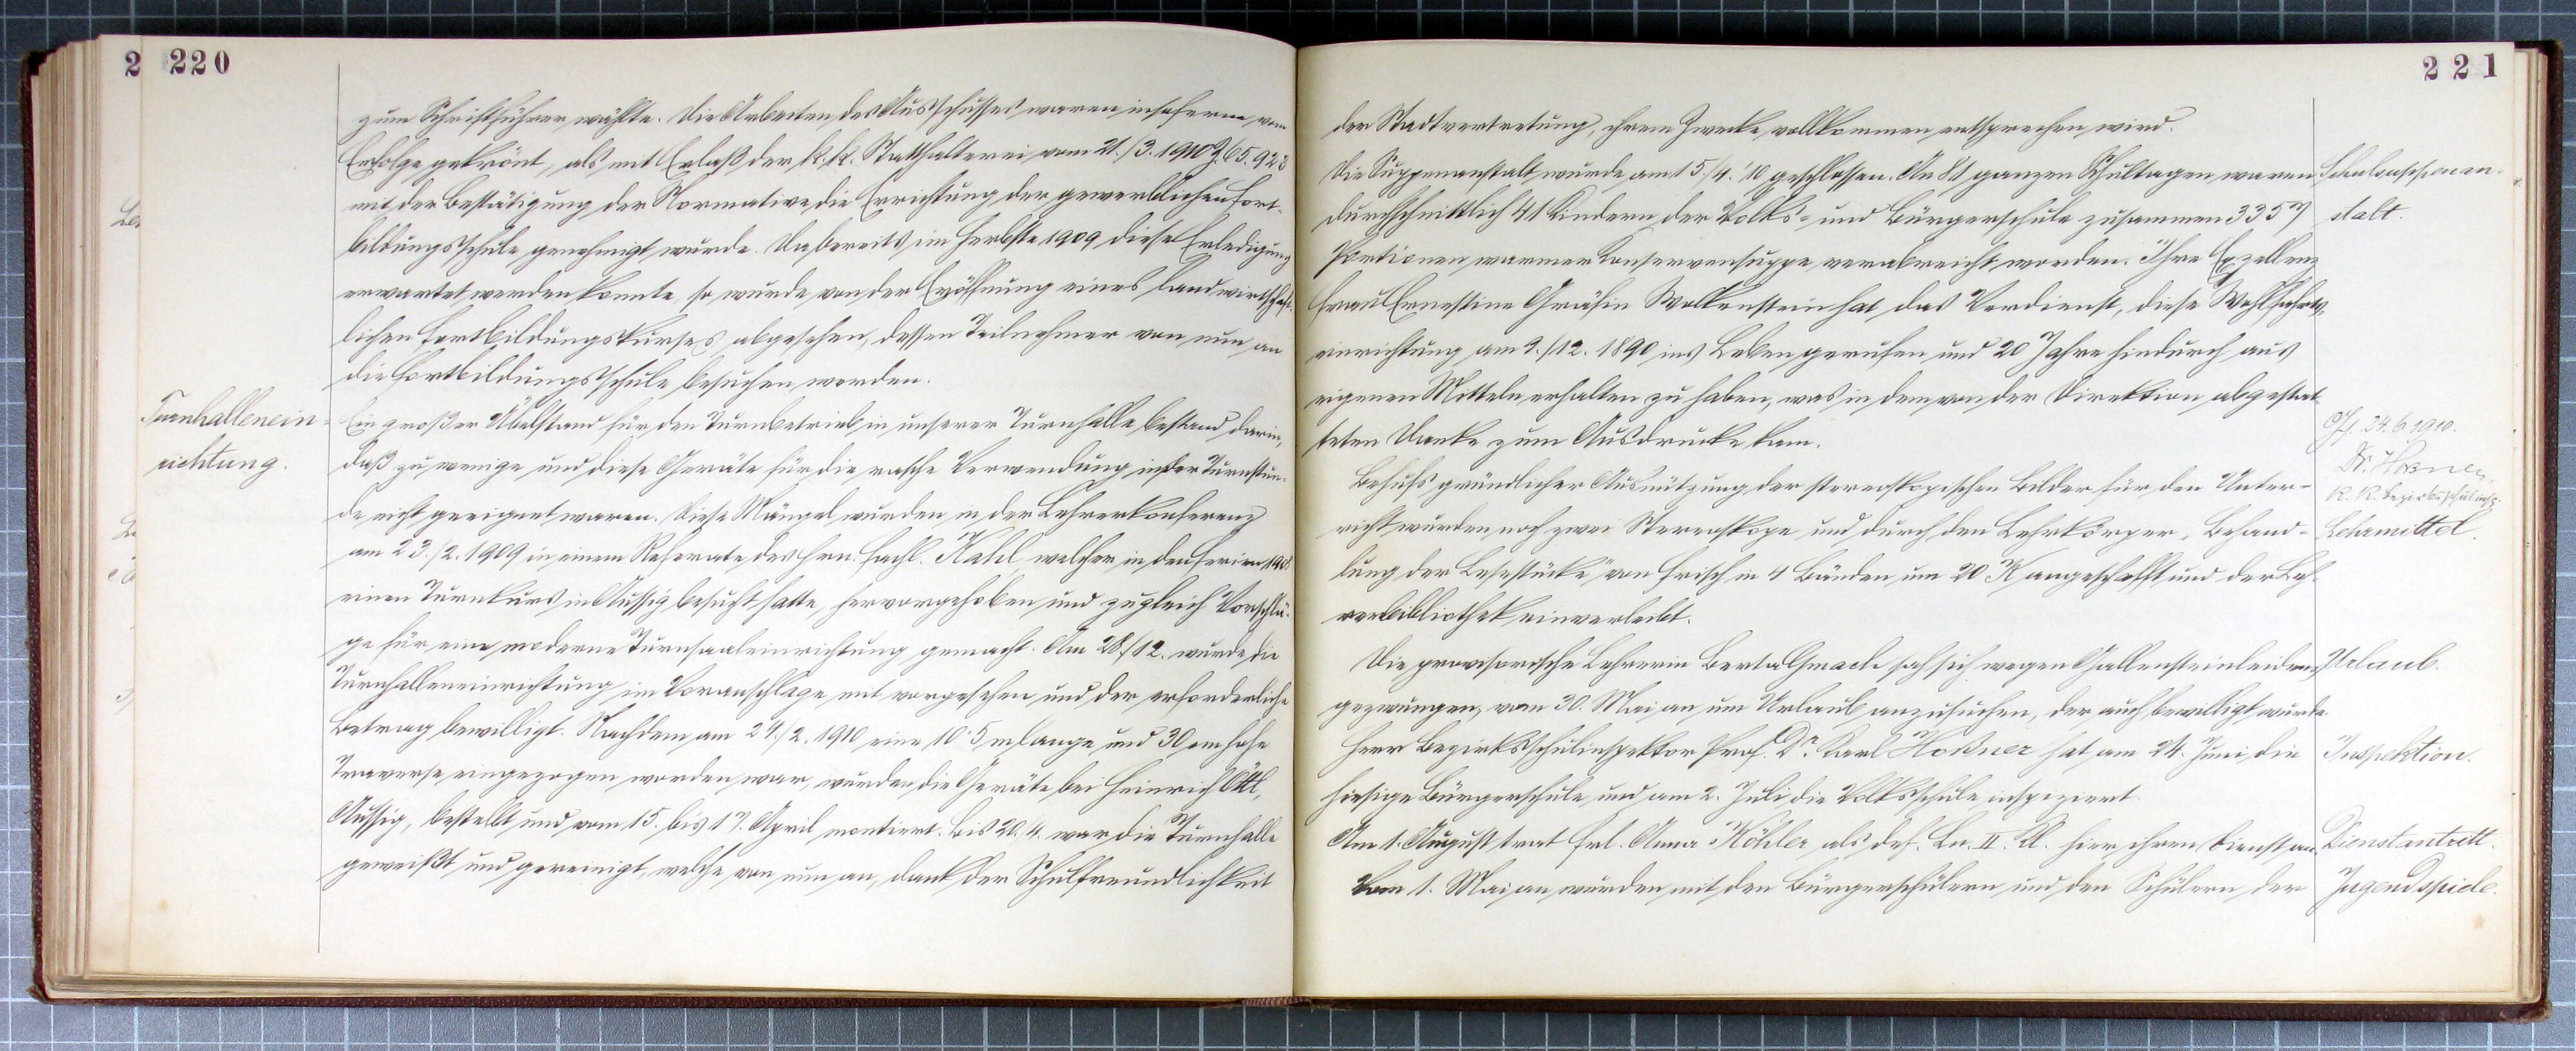 220
zum Schriftführer wählte. Die Arbeiten des Ausschusses waren insoferne vom
Erfolge gekrönt, als mit Erlaß der k. k. Statthalterei vom 21./3. 1910 Z. 65.923
mit der Bestätigung der Normative die Errichtung der gewerblichen Fort-
bildungsschule genehmigt wurde. Da bereits im Herbste 1909 diese Erledigung
erwartet werden konnte, so wurde von der Eröffnung eines landwirtschaft-
lichen Fortbildungskurses abgesehen, dessen Teilnehmer von nun an
die Fortbildungsschule besuchen werden.
Turnhallenein-
richtung.
Ein großer Übelstand für den Turnbetrieb in unserer Turnhalle bestand darin,
daß zu wenige und diese Geräte für die rasche Verwendung in der Turnstun-
de nicht geeignet waren. Diese Mängel wurden in der Lehrerkonferenz
am 23./2. 1909 in einem Referate des Hrn. Fachl. Kahl, welcher in den Ferien 1908
einen Turnkurs in Aussig besucht hatte, hervorgehoben und zugleich Vorschlä-
ge für eine moderne Turnsaaleinrichtung gemacht. Am 28./12. wurde die
Turnhalleneinrichtung im Voranschlage mit vorgesehen und der erforderliche
Betrag bewilligt. Nachdem am 24./2. 1910 eine 10·5 m lange und 30 cm hohe
Traverse eingezogen worden war, wurden die Geräte bei Heinrich Öttl,
Aussig, bestellt und vom 15. bis 17. April montiert. Bis 20./4. war die Turnhalle
geweißt und gereinigt, welche von nun an, dank der Schulfreundlichkeit
221
der Stadtvertretung, ihrem Zwecke vollkommen entsprechen wird.
Die Suppenanstalt wurde am 15./4. '10 geschlossen. An 81 ganzen Schultagen waren
durchschnittlich 41 Kindern der Volks- und Bürgerschule zusammen 3357
Portionen warmer Konservensuppe verabreicht worden. Ihre Exzellenz
Frau Ernestine Gräfin Wolkenstein hat das Verdienst, diese Wohlfahrts-
einrichtung am 9./12. 1890 ins Leben gerufen und 20 Jahre hindurch aus
eigenen Mitteln erhalten zu haben, was in dem von der Direktion abgestat-
teten Danke zum Ausdrucke kam.
stalt.
24. 6 1910.
Dr. Hoßner,
k. k. Bezirksschulinsp.
Behufs gründlicher Ausnützung der stereoskopischen Bilder für den Unter-
richt wurden noch zwei Stereoskope und durch den Lehrkörper „Behand-
lung der Lesestücke“ von Frisch in 4 Bänden um 20 K angeschafft und der Leh-
rerbibliothek einverleibt.
Lehrmittel.
Die provisorische Lehrerin Berta Gmach sah sich wegen Gallensteinleidens
gezwungen, vom 30. Mai an um Urlaub anzusuchen, der auch bewilligt wurde.
Urlaub.
Herr Bezirksschulinspektor Prof. Dr. Karl Hoßner hat am 24. Juni die
hiesige Bürgerschule und am 2. Juli die Volksschule inspiziert.
Inspektion.
Am 1. August trat Frl. Anna Köhler als def. Ln. II. Kl. hier ihren Dienst an.
Dienstantritt.
Vom 1. Mai an wurden mit den Bürgerschülern und den Schülern der
Jugendspiele.